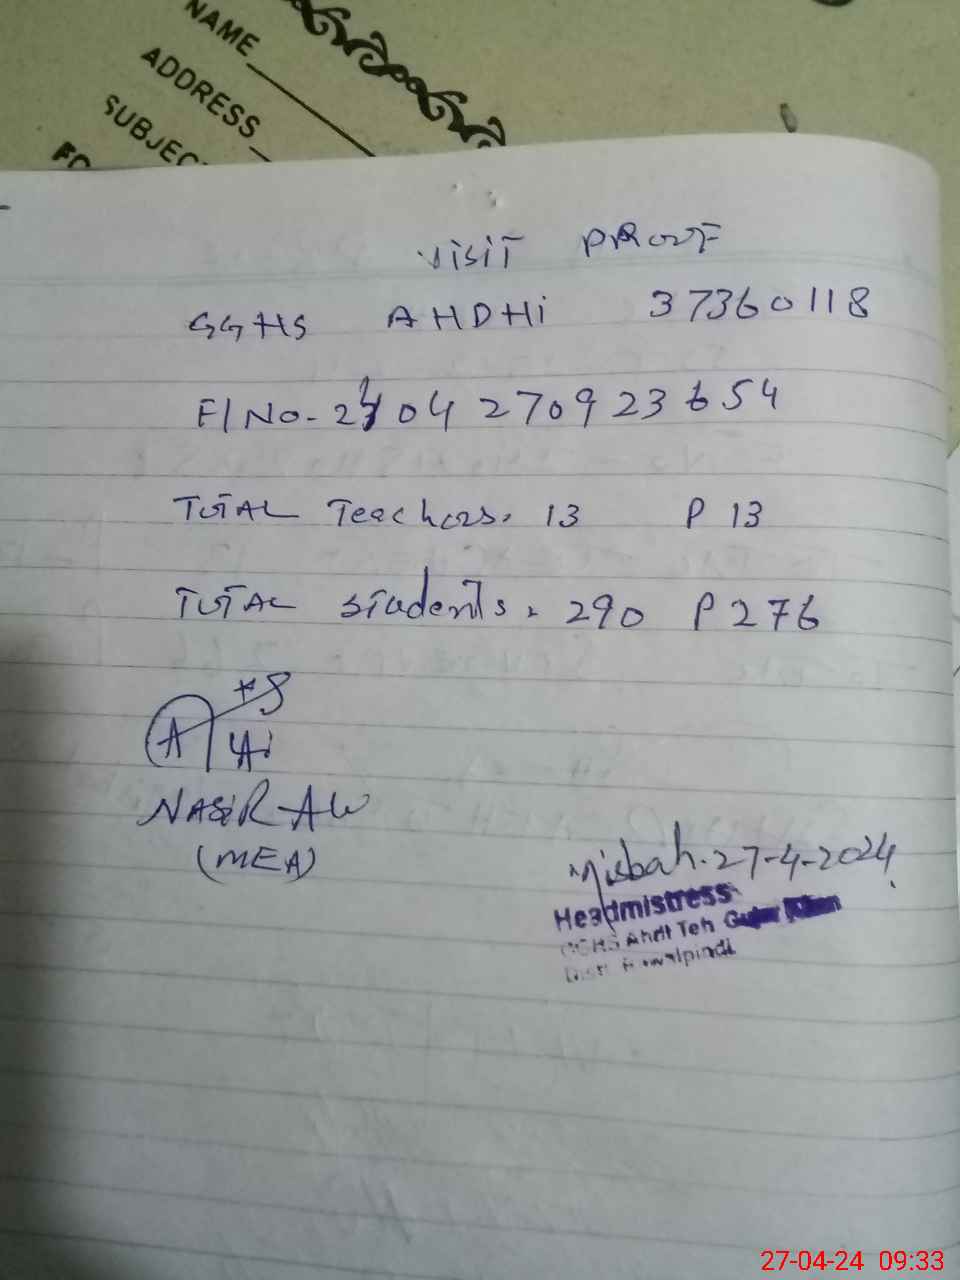 NAME
ADDRESS
SUBJEC
FO
VISIT PROOF
GGHS AHDHi 37360118
F/No- 2404270923654
TOTAL Teachers. 13 P 13
TOTAL students. 290 P 276
A
NASIR ALI
(MEA)
Misbah. 27-4-2024
Headmistress
GGHS Ahdi Teh Gujar Khan
Distt Rawalpindi
27-04-24 09:33